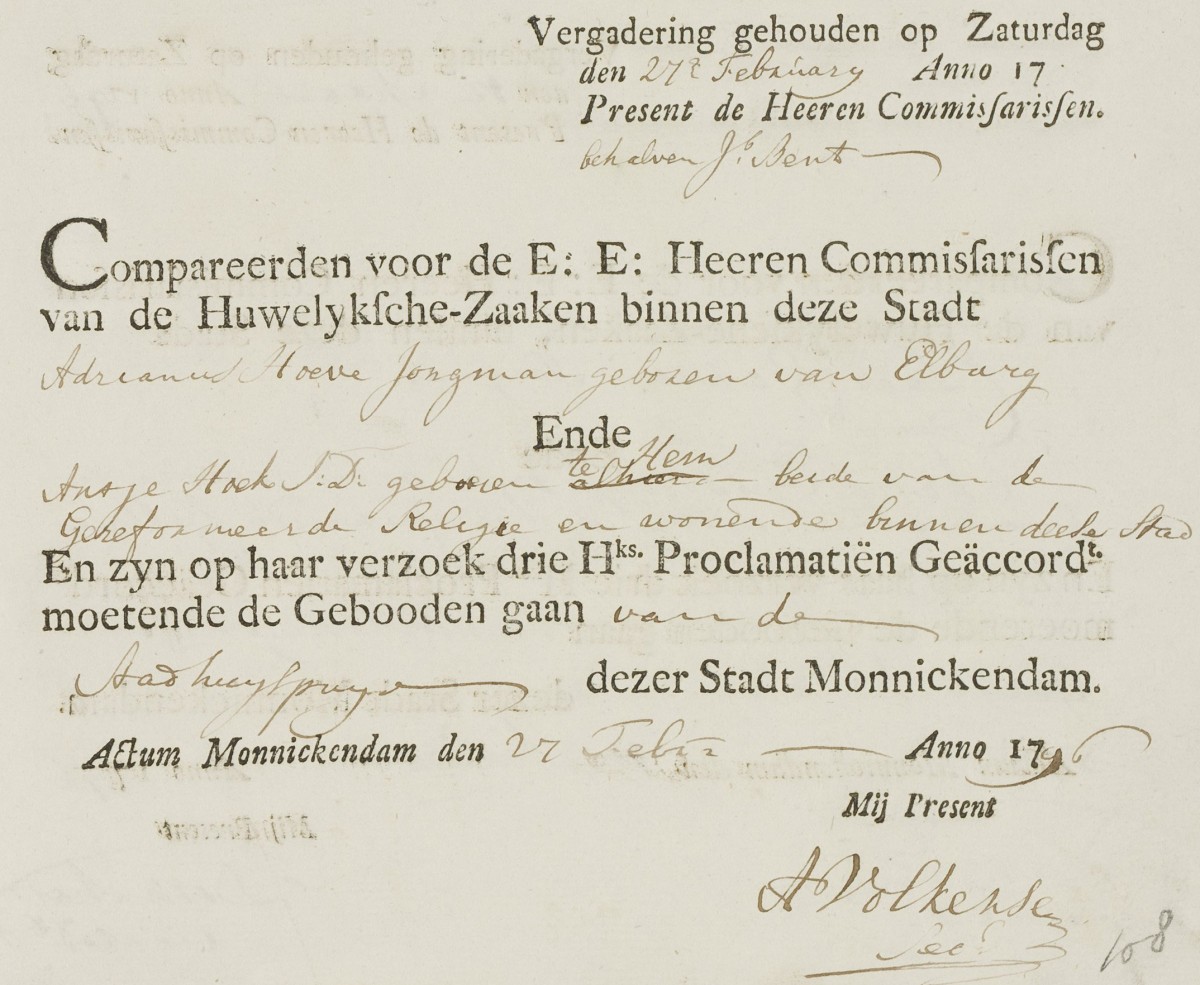 Vergadering gehouden op Zaturdag
den 27e February Anno 17
Present de Heeren Commisſarisſen.
behalven Jb. Bent
Compareerden voor de E: E: Heeren Commisſarisſen
van de Huwelykſche-Zaaken binnen deze Stadt
Adrianus Hoeve Jongman geboren van Elburg
Ende
te Hem
Antje Hoek J:D: geboren alhier beide van de
Gereformeerde Religie en wonende binnen deese Stad
En zyn op haar verzoek drie Hks. Proclamatiën Geäccordt.
moetende de Gebooden gaan van de
Stadhuyspuye dezer Stadt Monnickendam.
Actum Monnickendam den 27 Febr Anno 1796
Mij Present
A Volkense
Secs.
108